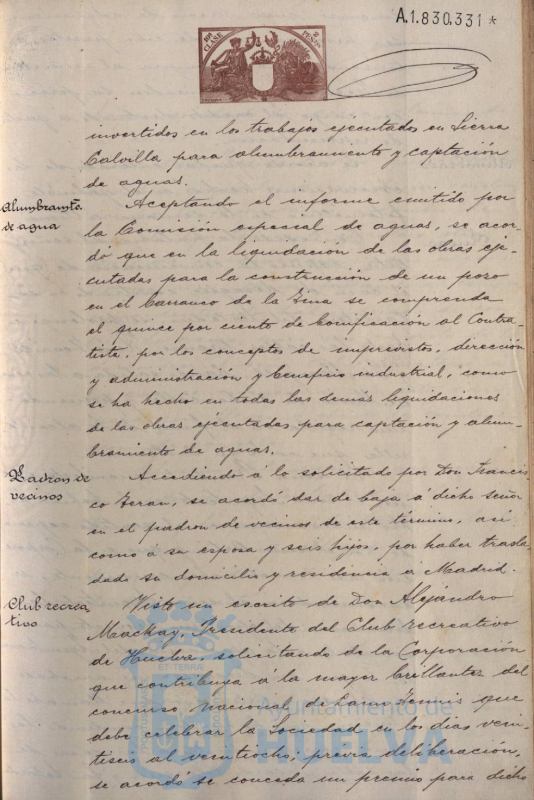 A.1.830.331 *
10ª CLASE
2 PESETAS
invertidos en los trabajos ejecutados en Sierra
Calvilla para alumbramiento y captación
de aguas.
Alumbramto.
de agua
Aceptando el informe emitido por
la Comisión especial de aguas, se acor-
dó que en la liquidación de las obras eje-
cutadas para la construcción de un pozo
en el barranco de la Zina se comprenda
el quince por ciento de bonificación al Contra-
tista, por los conceptos de imprevistos, dirección
y administración y beneficio industrial, como
se ha hecho en todas las demás liquidaciones
de las obras ejecutadas para captación y alum-
bramiento de aguas.
Padron de
vecinos
Accediendo á lo solicitado por Don Francis
co Teran, se acordó dar de baja á dicho señor
en el padron de vecinos de este término, así
como á su esposa y seis hijos, por haber trasla
dado su domicilio y residencia á Madrid.
Club recrea
tivo
Visto un escrito de Don Alejandro
Mackay, Presidente del Club recreativo
de Huelva, solicitando de la Corporación
que contribuya á la mayor brillantez del
concurso Nacional de Lawn Tennis que
debe celebrar la Sociedad en los dias vein-
tiseis al veintiocho; previa deliberación,
se acordó se conceda un premio para dicho
Ayuntamiento de
HUELVA